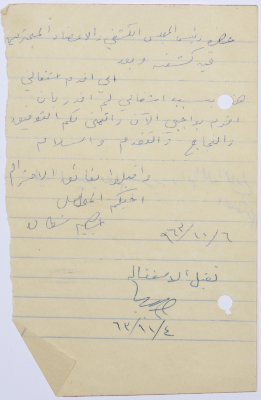 حضرة رئيس المجلس الكشفي والاعضاء المحترمين
تحية كشفية وبعد
اني اقدم استقالتي
بسبب اشغالي لم اقدر بان
اقوم بواجبي الآن واتمنى لكم التوفيق
والنجاح والتقدم والسلام
واقبلوا فائق الاحترام
اخيكم المخلص
٩٦٣/١٠/٦
تقبل الاستقالة
٦٣/١١/٤